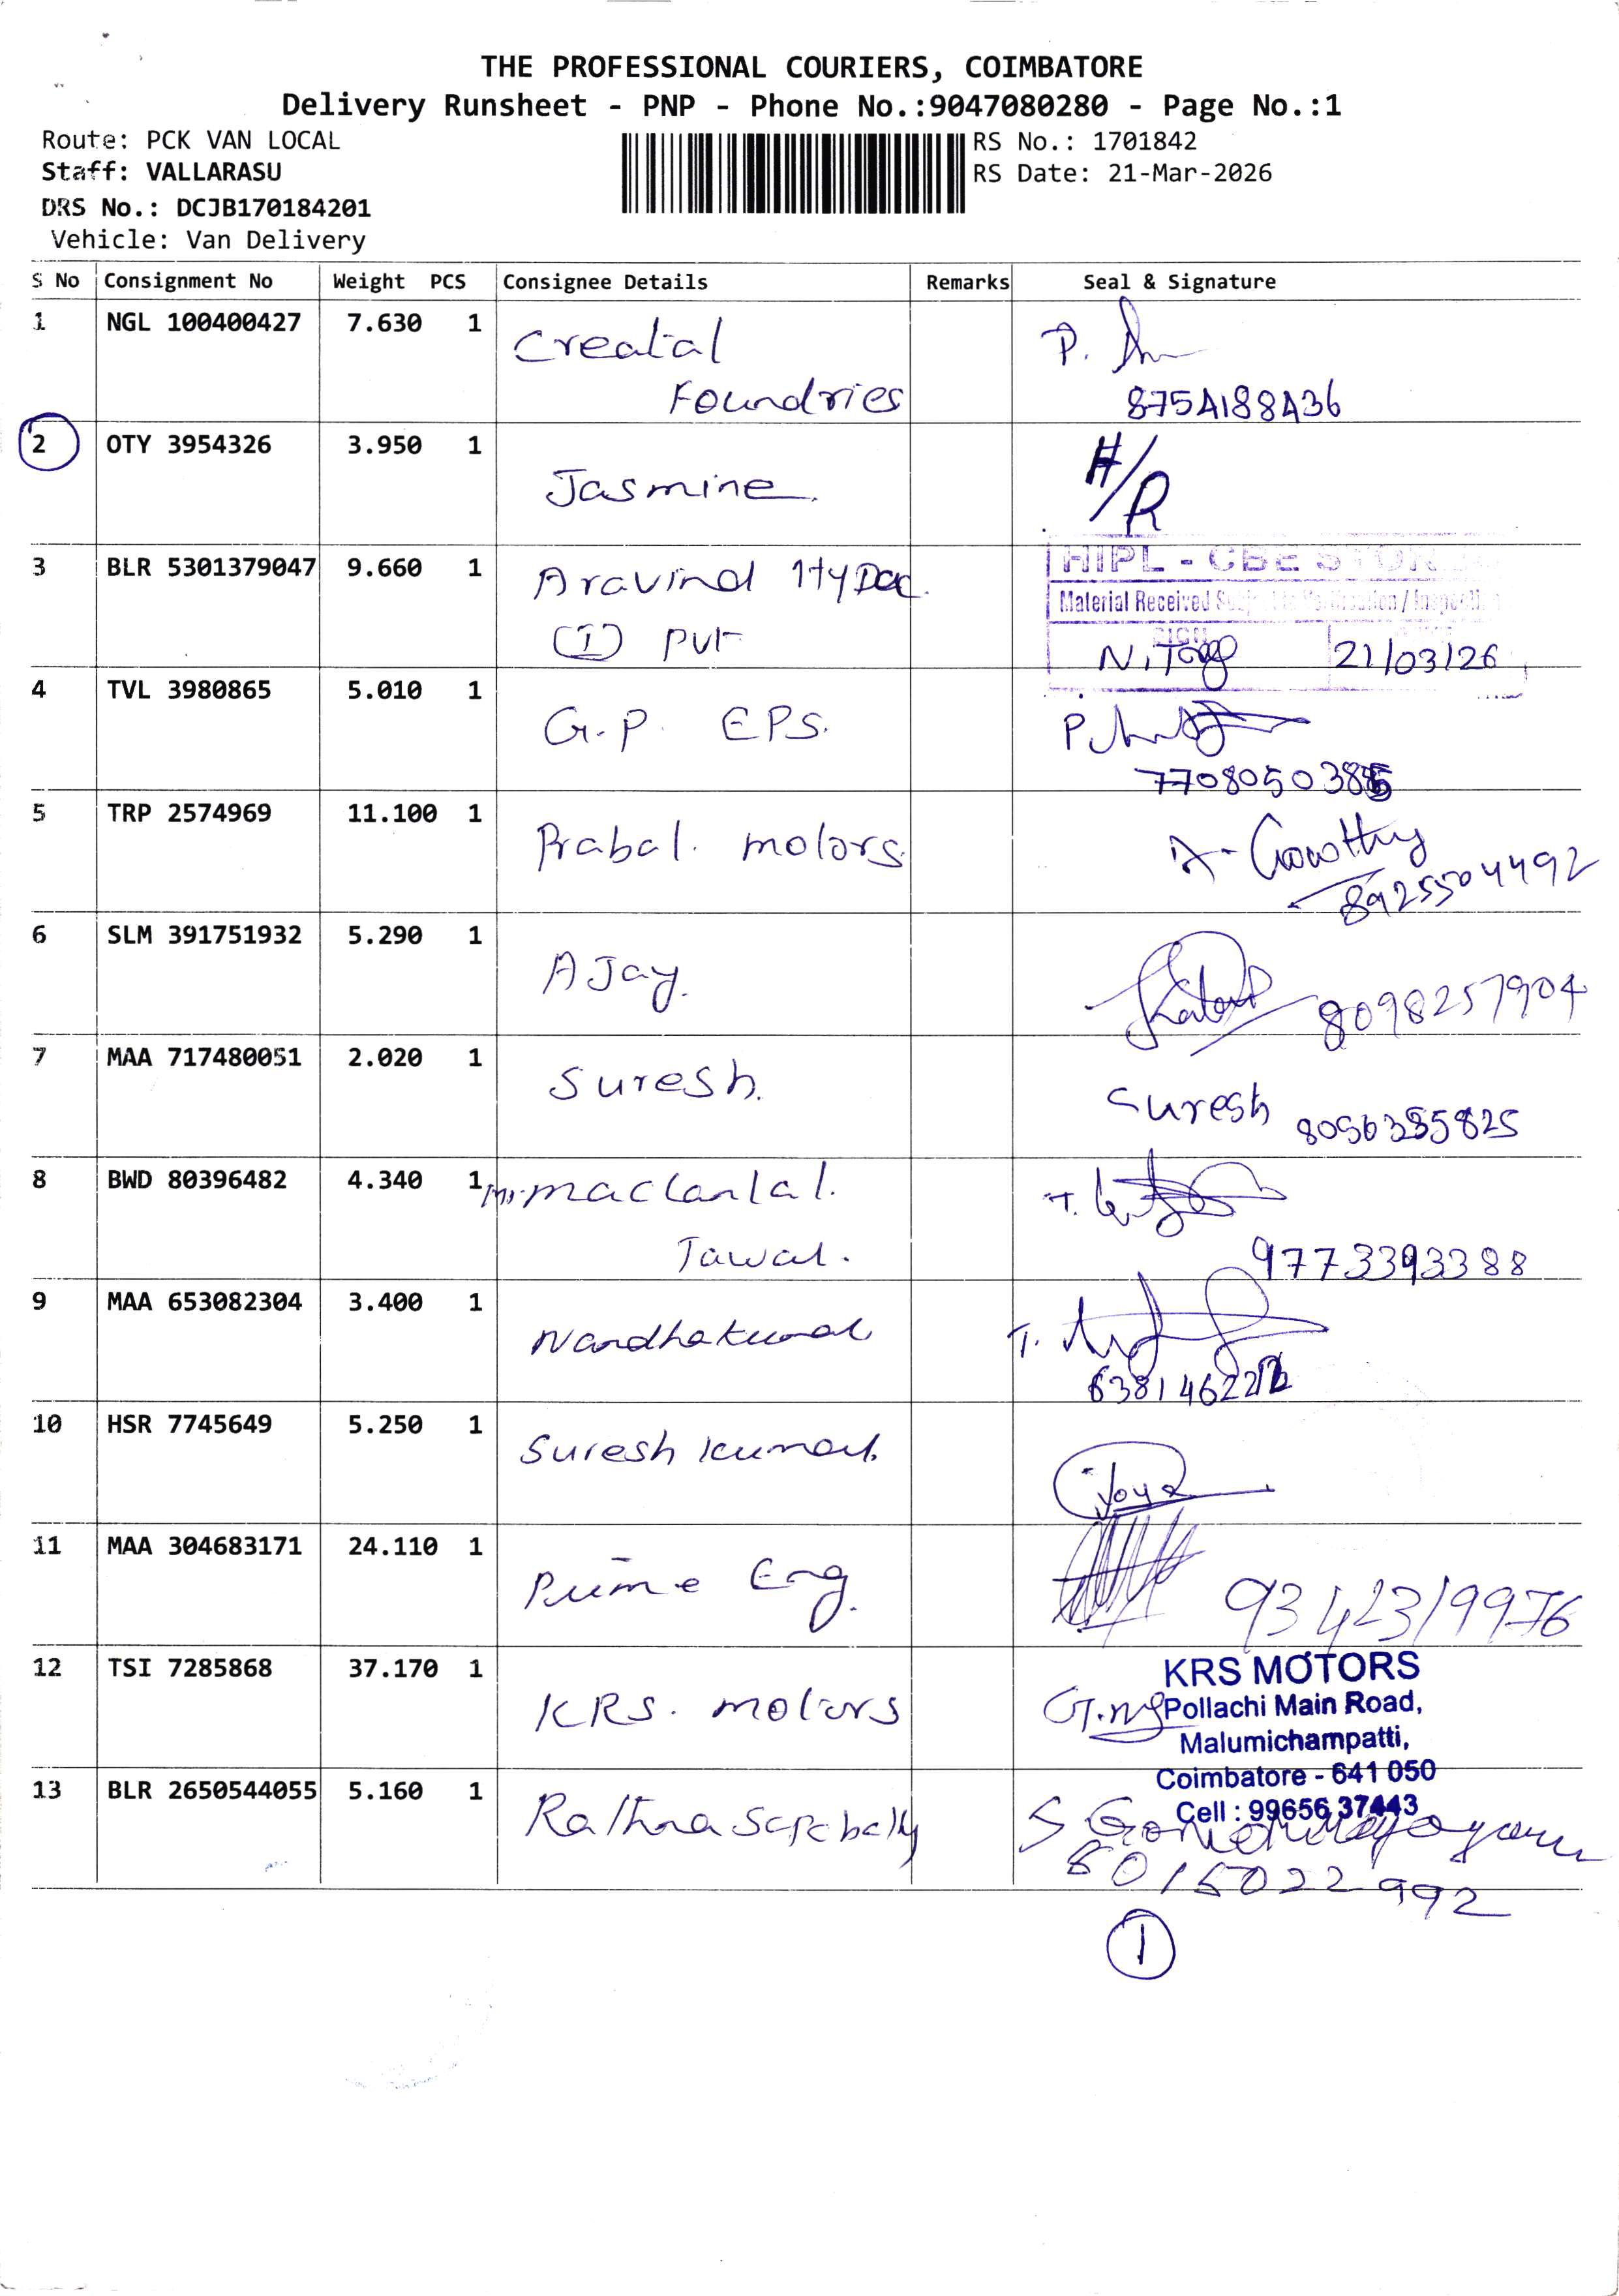 THE PROFESSIONAL COURIERS, COIMBATORE
Delivery Runsheet - PNP - Phone No.:9047080280 - Page No.:1
Route: PCK VAN LOCAL
Staff: VALLARASU
DRS No.: DCJB170184201
Vehicle: Van Delivery
RS No.: 1701842
RS Date: 21-Mar-2026
S No Consignment No Weight PCS Consignee Details Remarks Seal & Signature
1 NGL 100400427 7.630 1 Creatal
Foundries 8754188436
2 OTY 3954326 3.950 1 Jasmine.
3 BLR 5301379047 9.660 1 Aravind
(I) Pvt
HIPL - CBE STORE
Material Received Subject to Verification / Inspection
SIGN
21/03/26
4 TVL 3980865 5.010 1 G.P. EPS.
5 TRP 2574969 11.100 1 Prabal. motors
8925504492
6 SLM 391751932 5.290 1 AJay. 8098257904
7 MAA 717480051 2.020 1 Suresh. Suresh
8 BWD 80396482 4.340 1 Mr.
9773393388
9 MAA 653082304 3.400 1
10 HSR 7745649 5.250 1 Suresh kumar.
11 MAA 304683171 24.110 1 Prime Eng. 9342319976
12 TSI 7285868 37.170 1 KRS. motors
KRS MOTORS
Pollachi Main Road,
Malumichampatti,
Coimbatore - 641 050
Cell : 99656 37443
13 BLR 2650544055 5.160 1 Rathna
8015022992
1